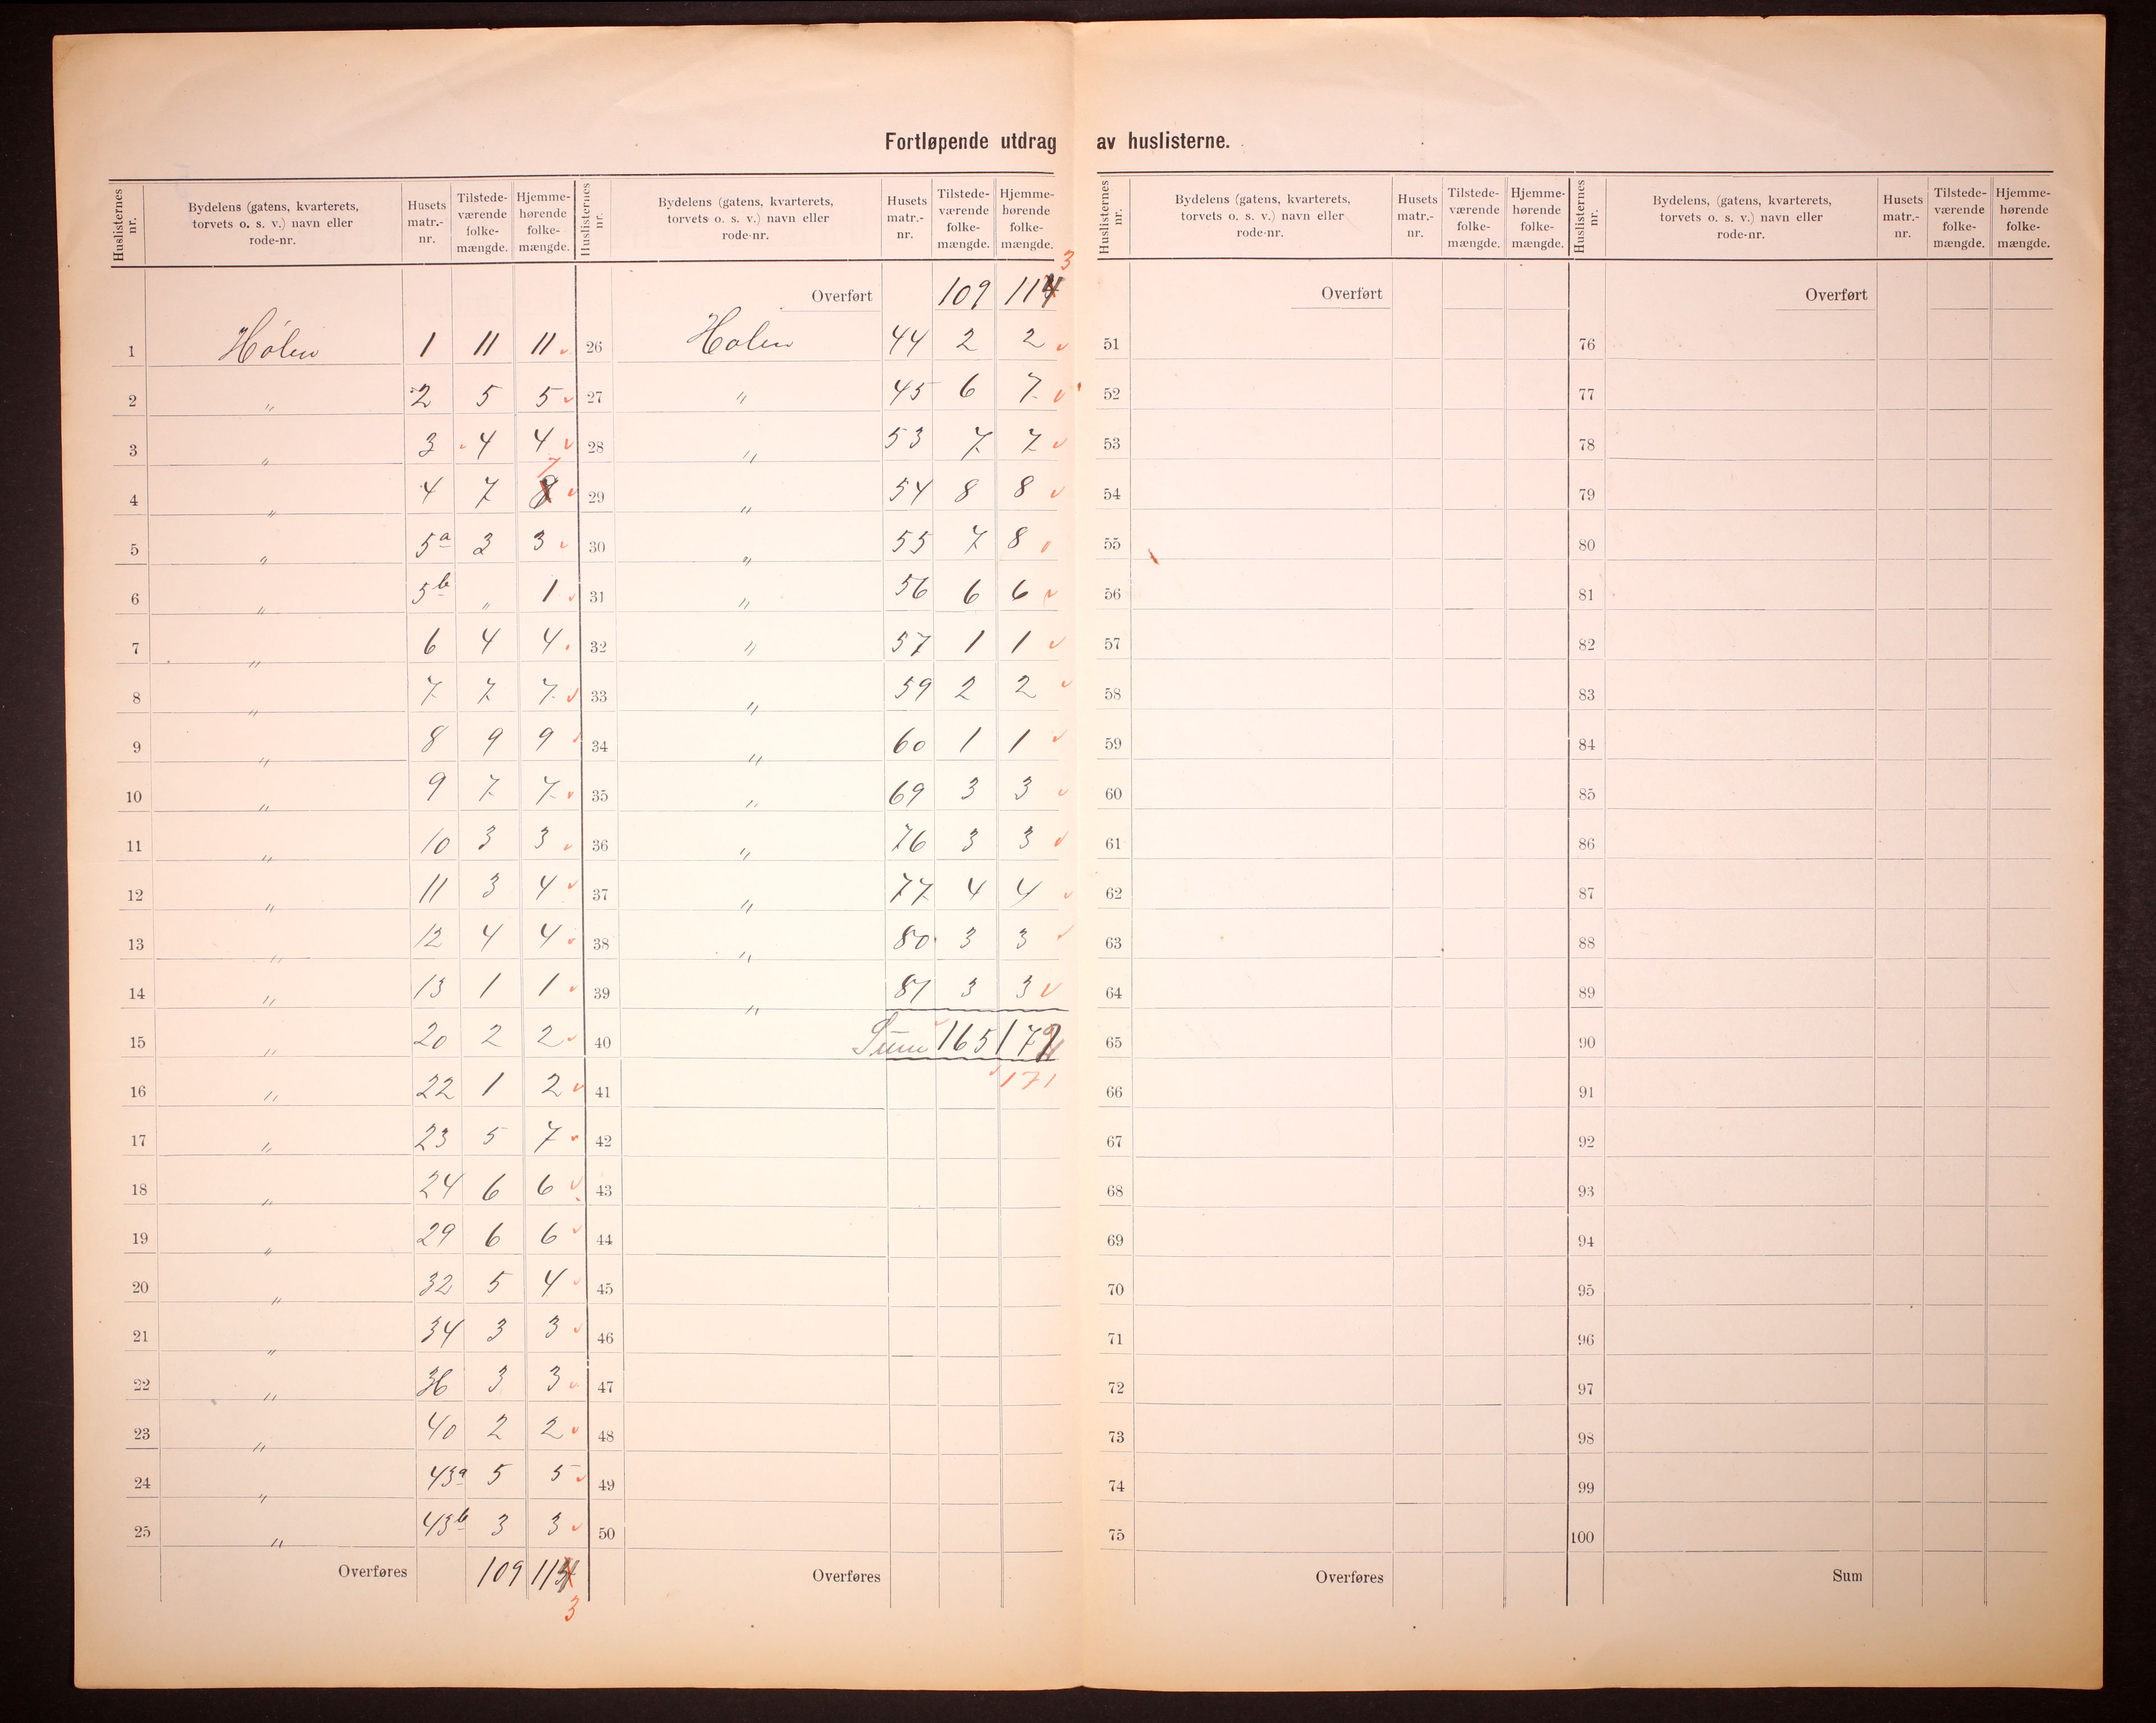 Fortløpende utdrag av huslisterne.
Huslisternes nr. | Bydelens (gatens, kvarterets, torvets o. s. v.) navn eller rode-nr. | Husets matr.-nr. | Tilstede-værende folke-mængde. | Hjemme-hørende folke-mængde.
1 Hølen 1 11 11
2 " 2 5 5
3 " 3 4 4
4 " 4 7 8 7
5 " 5a 3 3
6 " 5b " 1
7 " 6 4 4
8 " 7 7 7
9 " 8 9 9
10 " 9 7 7
11 " 10 3 3
12 " 11 3 4
13 " 12 4 4
14 " 13 1 1
15 " 20 2 2
16 " 22 1 2
17 " 23 5 7
18 " 24 6 6
19 " 29 6 6
20 " 32 5 4
21 " 34 3 3
22 " 36 3 3
23 " 40 2 2
24 " 43a 5 5
25 " 43b 3 3
Overføres 109 114
3
Huslisternes nr. | Bydelens (gatens, kvarterets, torvets o. s. v.) navn eller rode-nr. | Husets matr.-nr. | Tilstede-værende folke-mængde. | Hjemme-hørende folke-mængde.
3
Overført 109 114
26 Hølen 44 2 2
27 " 45 6 7
28 " 53 7 7
29 " 54 8 8
30 " 55 7 8
31 " 56 6 6
32 " 57 1 1
33 " 59 2 2
34 " 60 1 1
35 " 69 3 3
36 " 76 3 3
37 " 77 4 4
38 " 80 3 3
39 " 81 3 3
40 Sum 165 172
41 171
42
43
44
45
46
47
48
49
50
Overføres
Huslisternes nr. | Bydelens (gatens, kvarterets, torvets o. s. v.) navn eller rode-nr. | Husets matr.-nr. | Tilstede-værende folke-mængde. | Hjemme-hørende folke-mængde.
Overført
51
52
53
54
55
56
57
58
59
60
61
62
63
64
65
66
67
68
69
70
71
72
73
74
75
Overføres
Huslisternes nr. | Bydelens, (gatens, kvarterets, torvets o. s. v.) navn eller rode-nr. | Husets matr.-nr. | Tilstede-værende folke-mængde. | Hjemme-hørende folke-mængde.
Overført
76
77
78
79
80
81
82
83
84
85
86
87
88
89
90
91
92
93
94
95
96
97
98
99
100
Sum